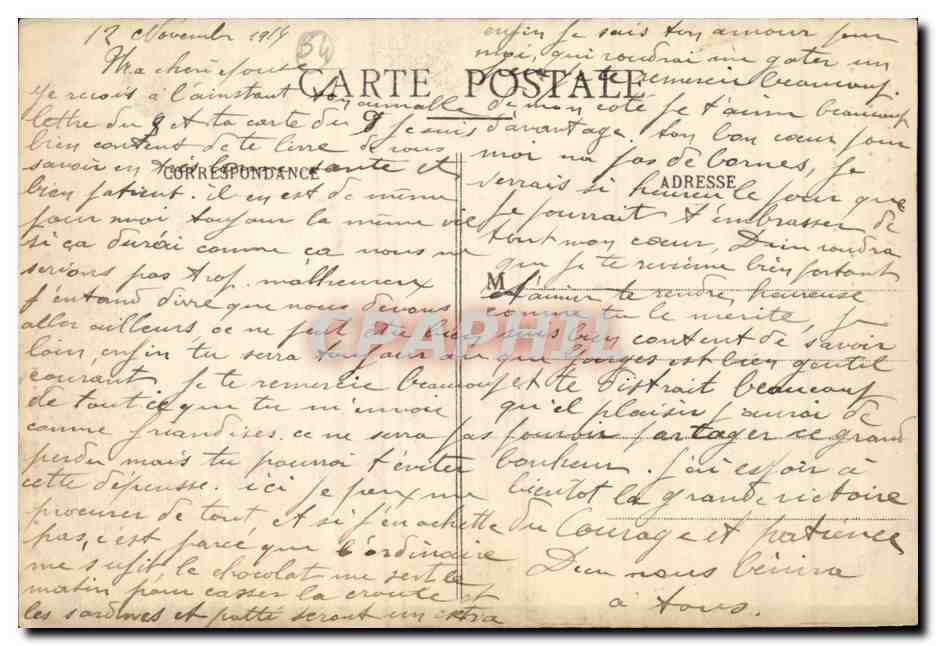 12 Novembre 1914
34
Ma cheri
CARTE POSTALE
Je recois à l'ainstant ton aimable
lettre du 8 et ta carte du 9 je suis
bien content de te lire de vous
savoir en bonne santé et
CORRESPONDANCE
bien patient. il en est de même
pour moi toujour la même vie
si ça durai comme ça nous ne
serions pas trop malheureux
j'entand dire que nous devons
aller ailleurs, ce ne fait rien bien
loin, enfin tu sera toujour au
courant. Je te remercie beaucoup
de tout ce que tu m'envoi
comme friandises. ce ne sera pas
perdu mais tu pourrai t'éviter
cette dépensse. ici je peux me
procurer de tout, et si j'en achette
pas, c'est parce que l'ordinaire
me sufit le chocolat me sert le
matin pour casser la croute et
les sardines et patté seront un extra
enfin je sais ton amour pour
moi, qui voudrai me gater un
remercie beaucoup
de mon coté je t'aime beaucoup
d'avantage ton bon cœur pour
moi na pas de bornes, je
ADRESSE
serrais si heureu le jour que
je pourrait t'embrasser de
tout mon cœur, Dieu voudra
que je te revienne bien portant
M
t'aimer te rendre heureuse
comme tu le mérite je
suis bien content de savoir
que est bien gentil
et te distrait beaucoup
qu'el plaisir j'aurai de
pouvoir partager ce grand
bonheur. j'ai espoir à
bientot la grande victoire
du Courage et patience
Dieu nous bénira
à tous.
CPAPHIL